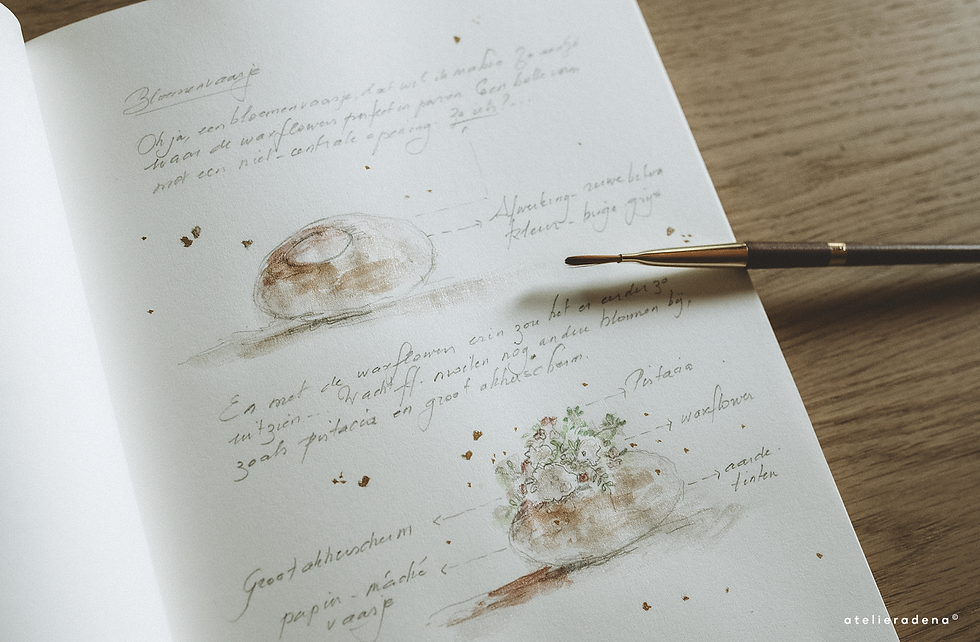 Bloemenvaasje
Oh ja, een bloemenvaasje, dat wil ik maken. Zo eentje
waar de waxflowers perfect in passen. Een bolle vorm
met een niet-centrale opening. Zo iets?....
Afwerking - ruwe beton
kleur - beige grijs
En met de waxflowers erin zou het er eerder zo
uitzien... Wacht ff. moeten nog andere bloemen bij,
zoals pistacia en groot akkerscherm.
Pistacia
waxflower
aarde
tinten
Groot akkerscherm
papier-maché
vaasje
atelieradena©